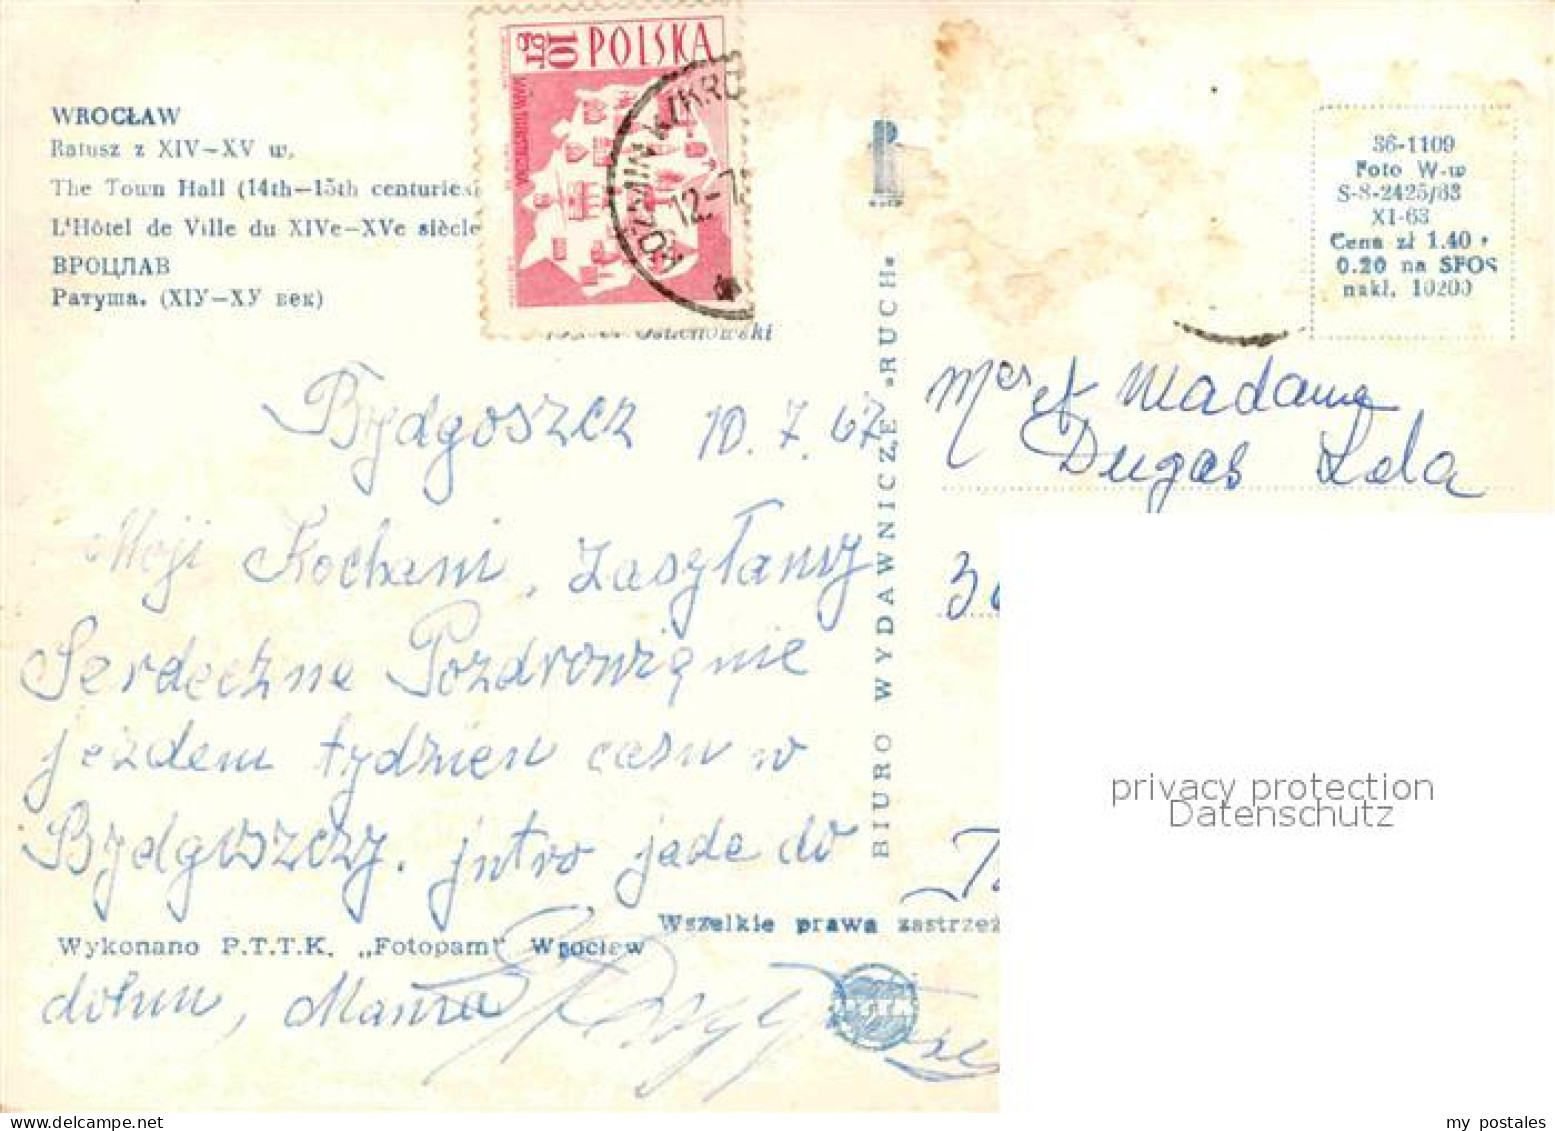 WROCŁAW
Ratusz z XIV—XV w.
The Town Hall (14th—15th centuries)
L'Hôtel de Ville du XIVe—XVe siècle
ВРОЦЛАВ
Ратуша. (XIУ—XУ век)
10 gr POLSKA
KOŹMIN K/KRO
12.-7
36-1109
Foto W-w
S-8-2425/63
XI-63
Cena zł 1.40 +
0.20 na SFOS
nakł. 10200
Bydgoszcz 10.7.67
Moji Kochani, Zasyłamy
Serdeczne Pozdrowięnie
jezdem tydzien casu w
Bydgoszczy. jutro jade do
domu, Mama
BIURO WYDAWNICZE »RUCH«
Mer et Madame
Dugas Lola
Wszelkie prawa zastrzeż
Wykonano P.T.T.K. „Fotopam" Wrocław
privacy protection
Datenschutz
delcampe.net
my_postales